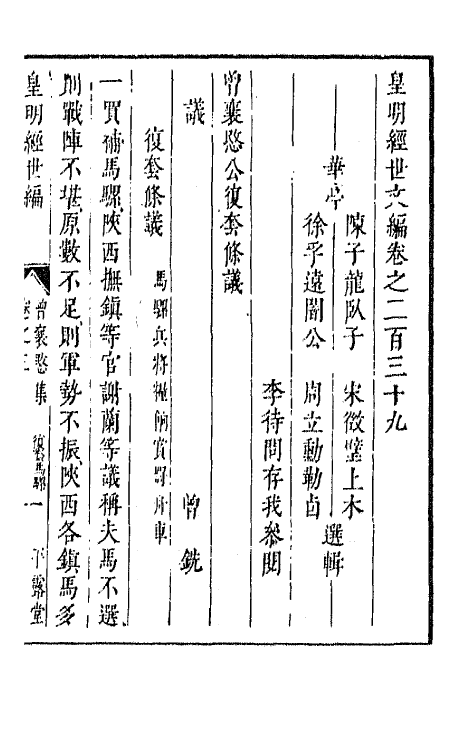 皇明經世文編卷之二百三十九
華亭
陳子龍臥子 宋徵璧上木
徐孚遠闇公 周立勳勒卣
選輯
李待問存我叅閱
曾襄愍公復套條議
議 曾銑
復套條議 馬騾兵將糧餉賞罰舟車
一買補馬騾陝西撫鎮等官謝蘭等議稱夫馬不選
則戰陣不堪原數不足則軍勢不振陝西各鎮馬多
皇明經世編 曾襄愍集 卷之三 馬騾 一 平露堂